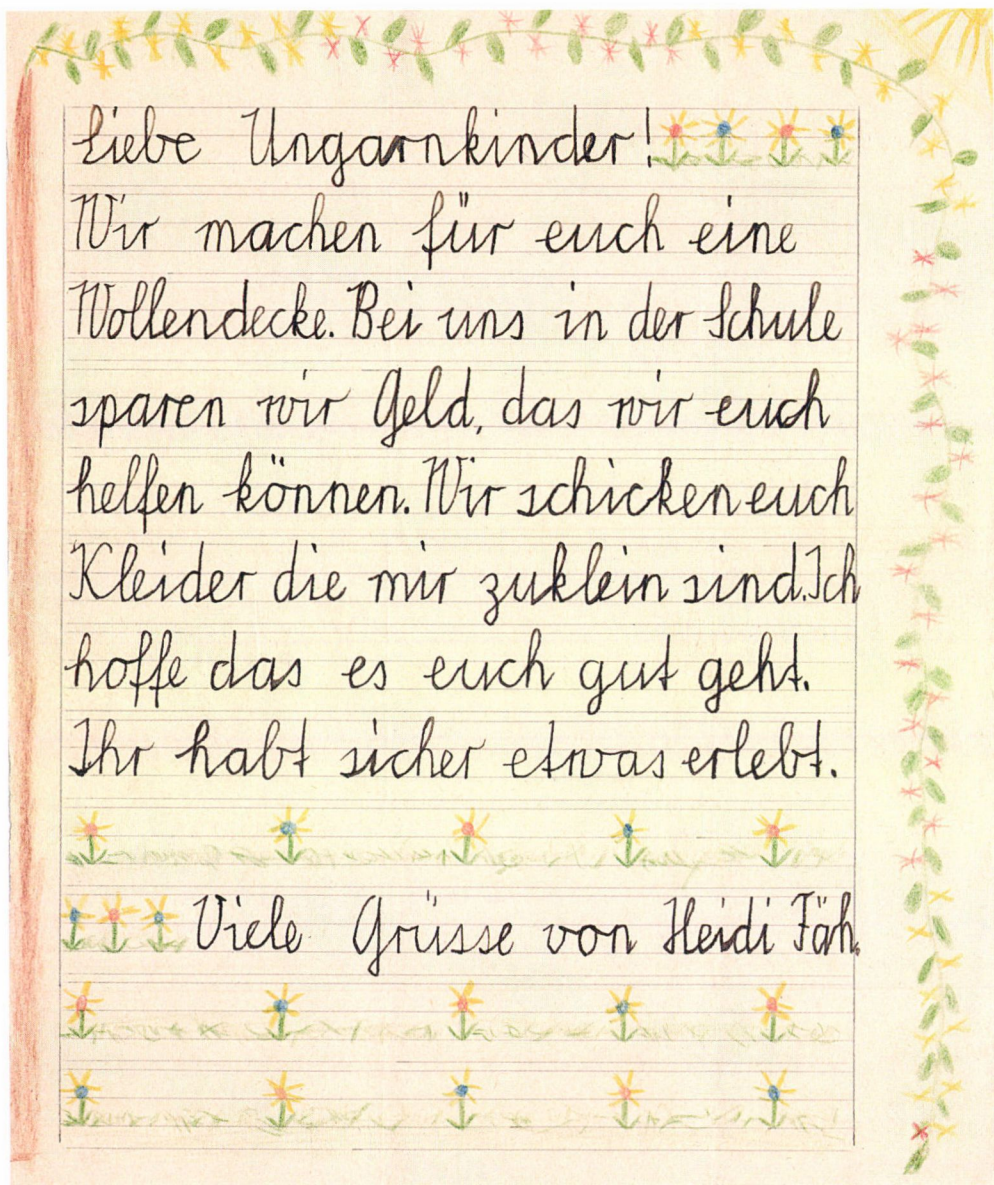 Liebe Ungarnkinder!
Wir machen für euch eine
Wollendecke. Bei uns in der Schule
sparen wir Geld, das wir euch
helfen können. Wir schicken euch
Kleider die mir zuklein sind. Ich
hoffe das es euch gut geht.
Ihr habt sicher etwas erlebt.
Viele Grüsse von Heidi Fäh.